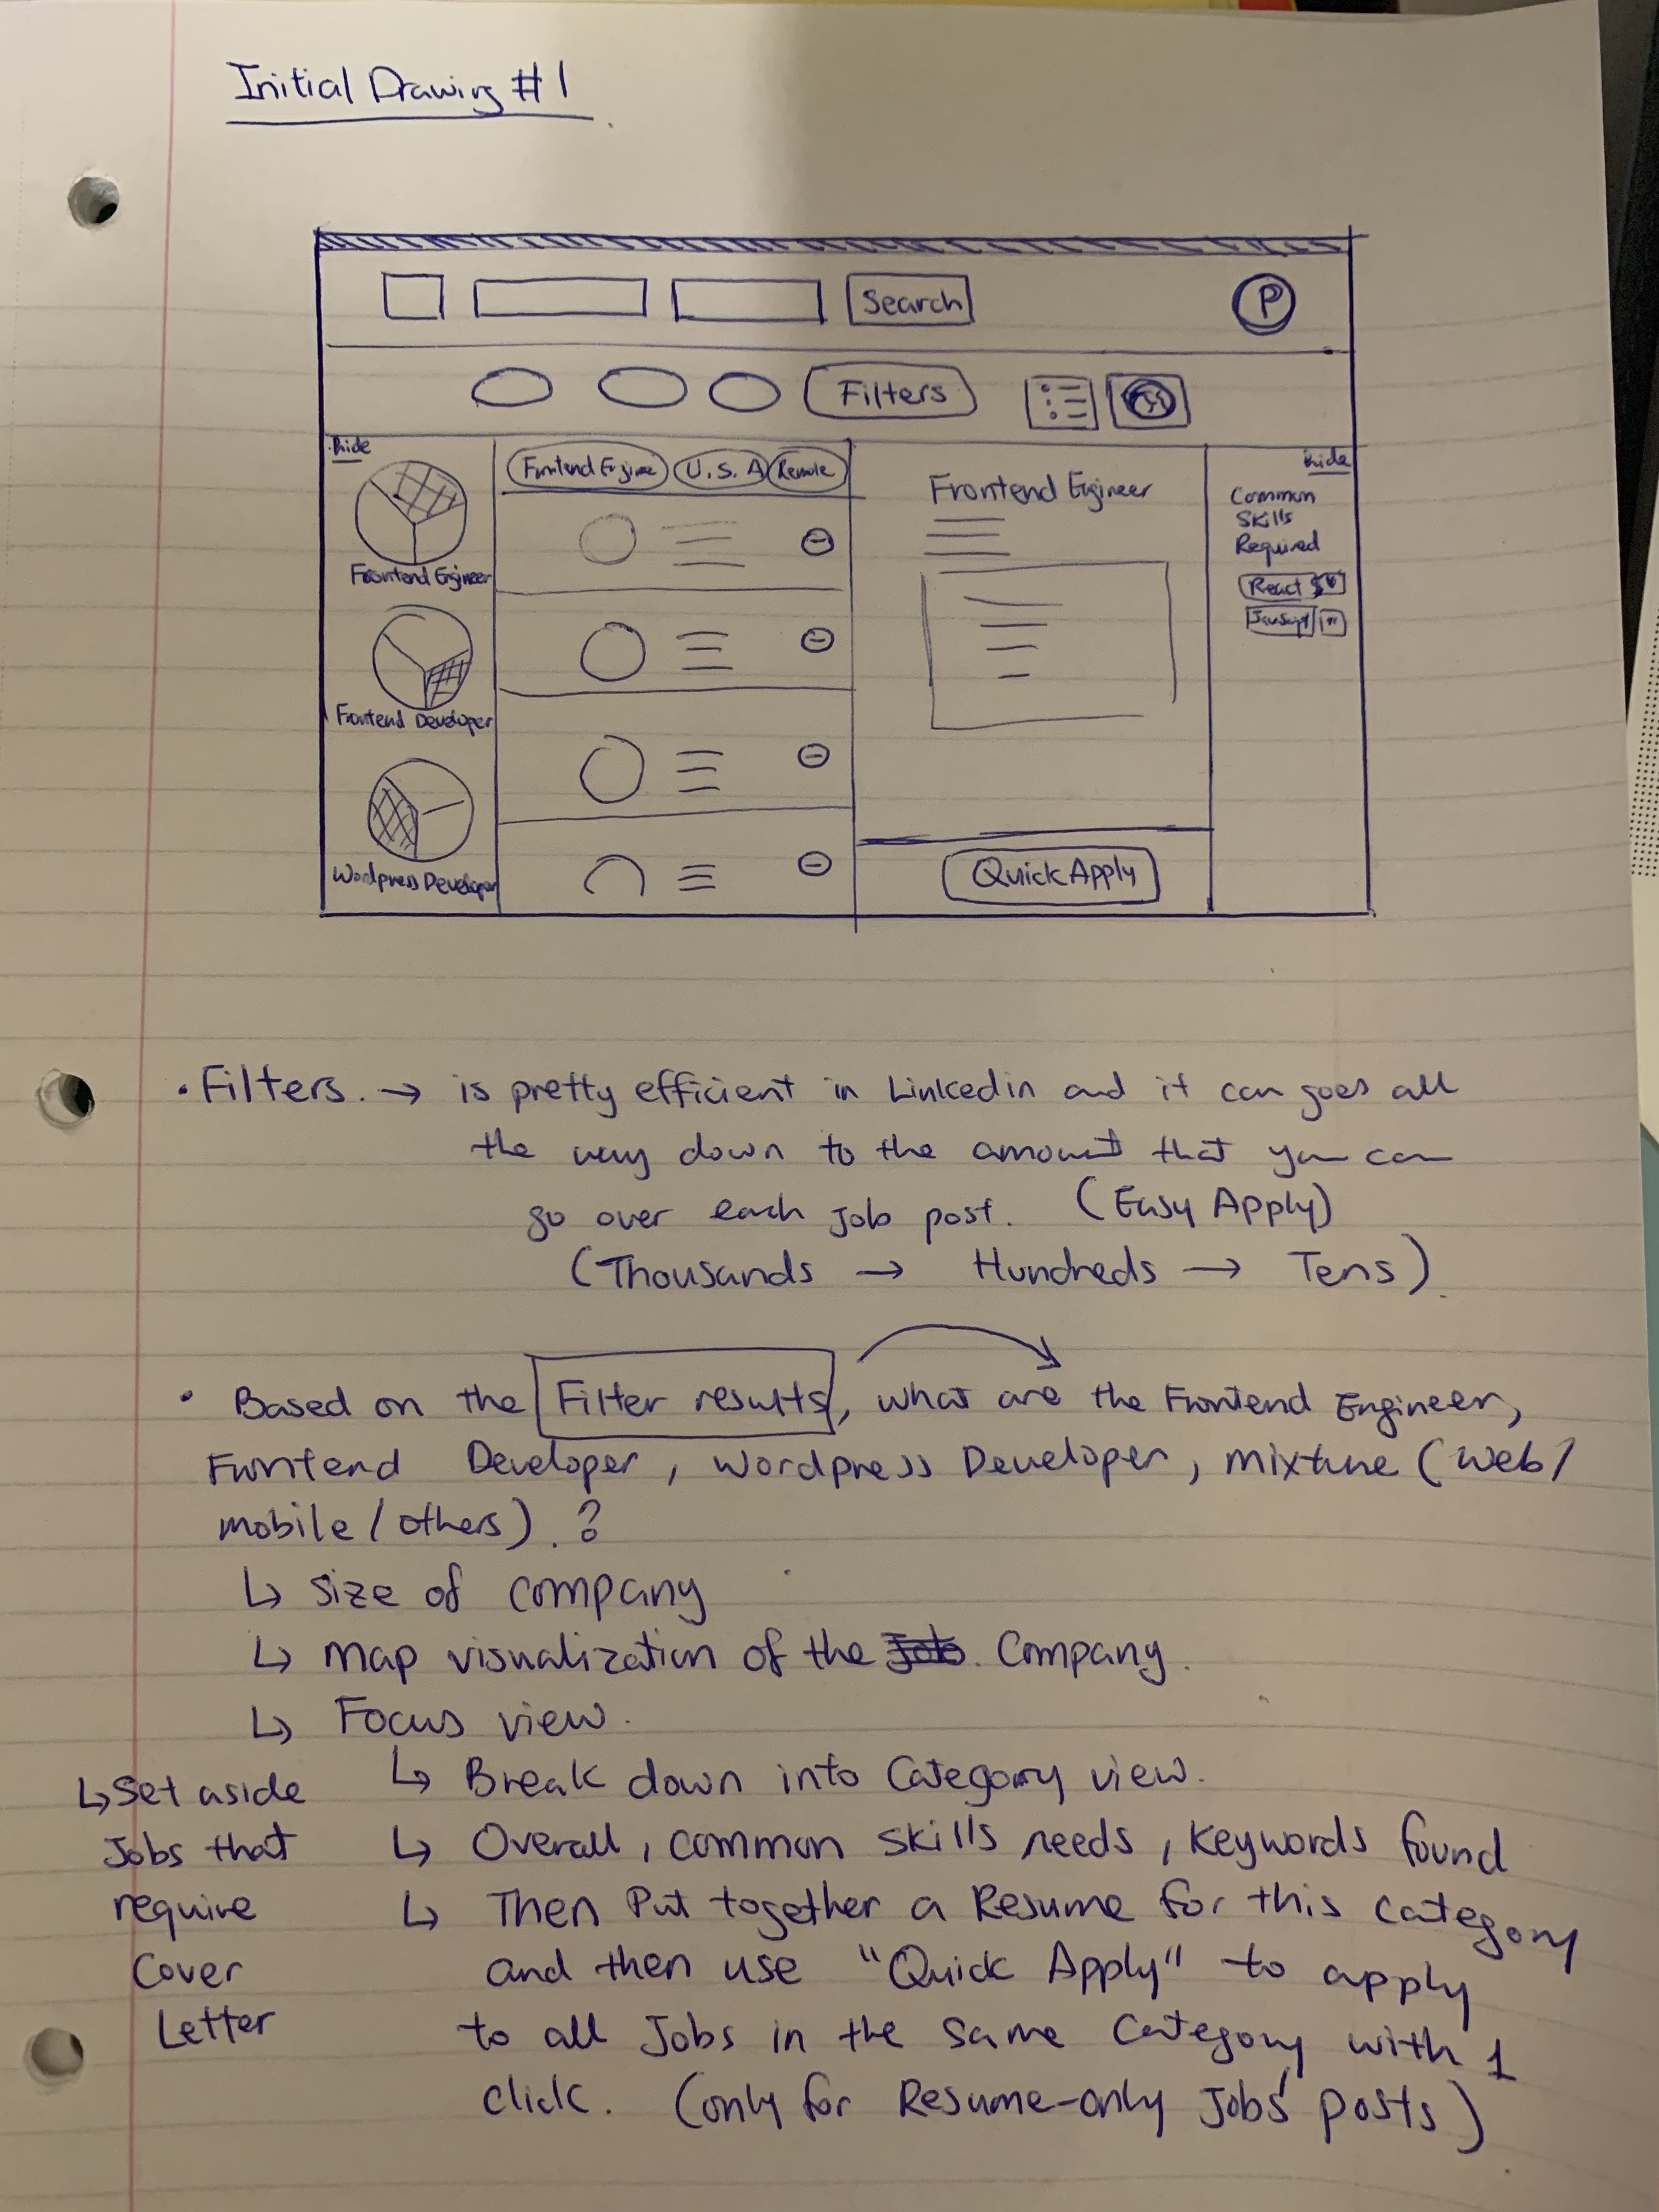 Initial Drawing #1
Search
P
Filters
hide
Frontend Engine
U.S.A
Remote
Frontend Engineer
Frontend Developer
Wordpress Developer
Frontend Engineer
Quick Apply
hide
Common
Skills
Required
React
JavaScript
• Filters. → is pretty efficient in Linkedin and it can goes all
the way down to the amount that you can
go over each job post. (Easy Apply)
(Thousands → Hundreds → Tens).
• Based on the Filter results, what are the Frontend Engineer,
Frontend Developer, Wordpress Developer, mixture (web/
mobile/others). ?
↳ size of company
↳ map visualization of the Job. Company.
↳ Focus view.
↳ Break down into Category view.
↳ Overall, common skills needs, keywords found
↳ Then Put together a Resume for this category
and then use "Quick Apply" to apply
to all Jobs in the same Category with 1
click. (only for Resume-only Jobs' posts)
↳ Set aside
Jobs that
require
Cover
Letter